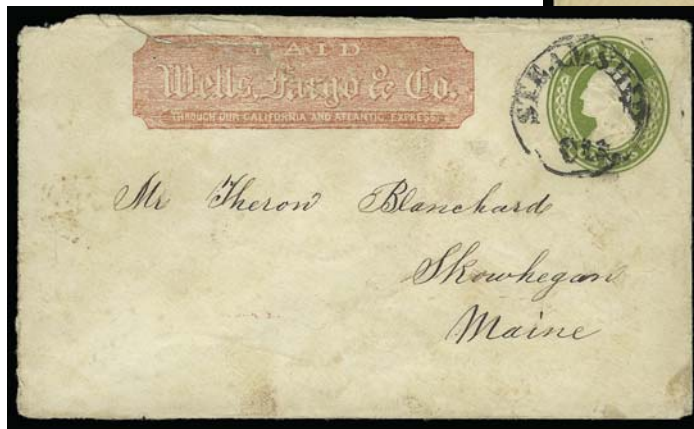 PAID
Wells, Fargo & Co.
THROUGH OUR CALIFORNIA AND ATLANTIC EXPRESS.
STEAMSHIP
Mr Theron Blanchard
Skowhegan
Maine